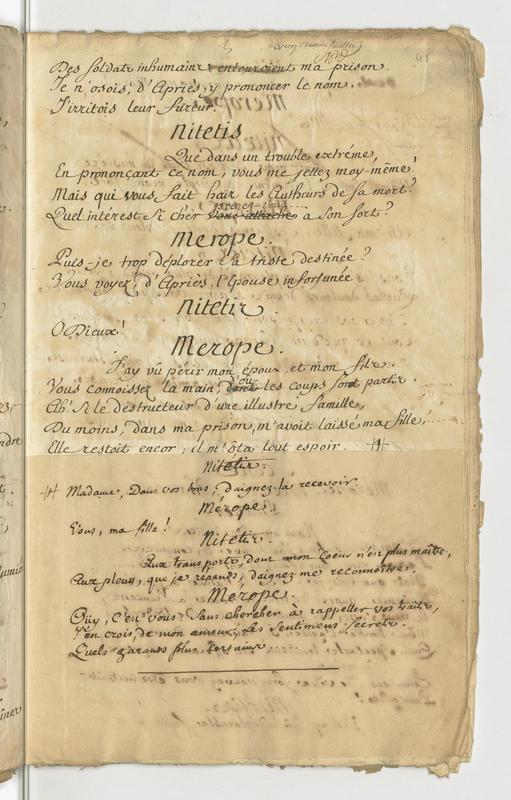 41
Des Soldats inhumains entouroient ma prison.
Je n'osois, d'Apriès, y prononcer le nom.
J'irritois leur fureur.
Nitetis
Que dans un trouble extréme,
En prononçant ce nom, vous me jettez moy-même!
Mais qui vous fait haïr les Autheurs de sa mort?
prenez-vous
Quel interest si cher vous attache a son sort?
Merope.
Puis-je trop déplorer sa triste destinée?
Vous voyez, d'Apriès, l'Epouse infortunée
Nitetis.
O Dieux!
Merope.
J'ay vû périr mon époux, et mon fils.
Vous connoissez la main, d'où les coups sont partis.
Ah! Si le destructeur d'une illustre famille,
Du moins, dans ma prison, m'avoit laissé ma fille!
Elle restoit encor, il m'ôta tout espoir. #
Nitetis.
# Madame, Dans vos bras, daignez la recevoir.
Mérope.
Vous, ma fille!
Nitétis.
Aux transports, dont mon coeur n'est plus maître,
Aux pleurs, que je repands, daignez me reconnoître.
Merope.
Oüy, c'est vous. Sans chercher à rappeller vos traits,
J'en crois, de mon amour, les sentimens secrets.
Quels garants plus certains....